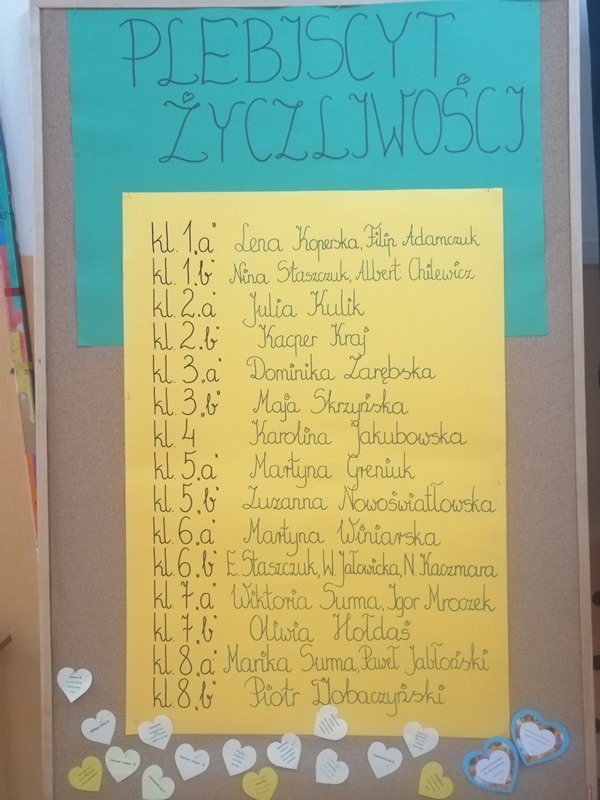 PLEBISCYT
ŻYCZLIWOŚCI
kl. 1„a" Lena Koperska, Filip Adamczuk
kl. 1„b" Nina Staszczuk, Albert Chilewicz
kl. 2„a" Julia Kulik
kl. 2„b" Kacper Kraj
kl. 3„a" Dominika Zarębska
kl. 3„b" Maja Skrzyńska
kl. 4 Karolina Jakubowska
kl. 5„a" Martyna Greniuk
kl. 5„b" Zuzanna Nowoświatłowska
kl. 6„a" Martyna Winiarska
kl. 6„b" E. Staszczuk, W. Jałowicka, N. Kaczmara
kl. 7„a" Wiktoria Surma, Igor Mroczek
kl. 7„b" Oliwia Hołdaś
kl. 8„a" Marika Surma, Paweł Jabłoński
kl. 8„b" Piotr Dobaczyński